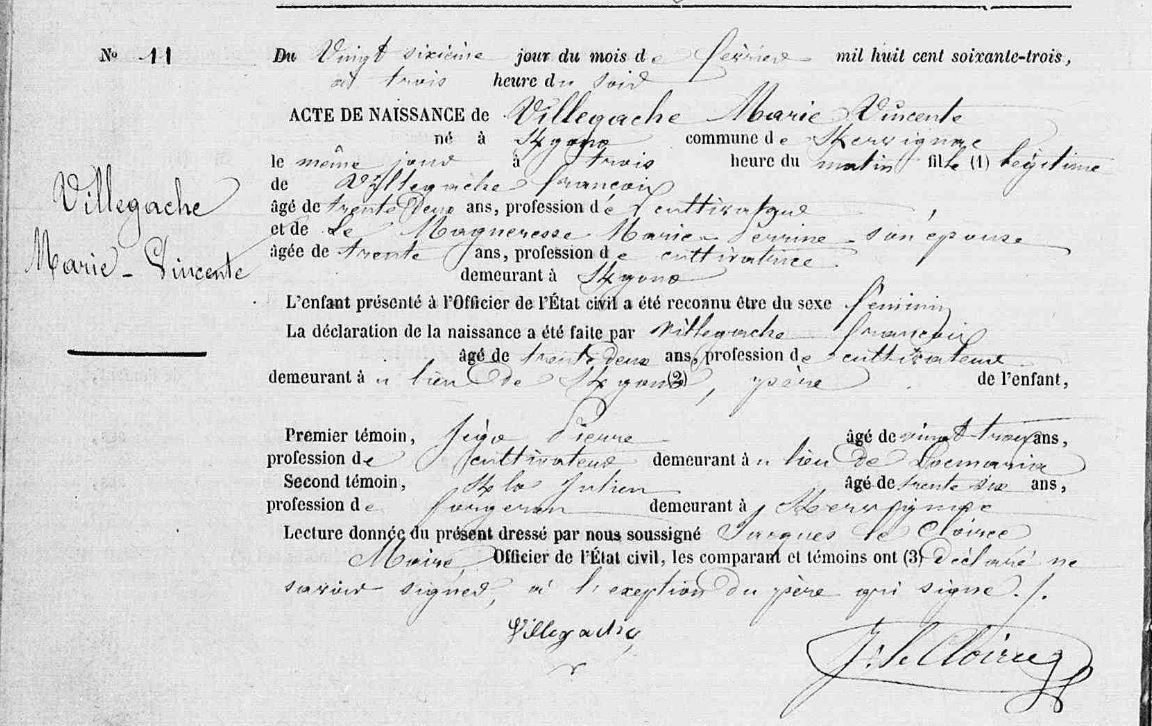 N° 11
Du Vingt sixième jour du mois de février mil huit cent soixante-trois,
à trois heure du soir
ACTE DE NAISSANCE de Villegache Marie Vincente
né à commune de
le même jour à trois heure du matin fille (1) légitime
de Villegache françois
âgé de trente deux ans, profession de cultivateur
et de Le Magueresse Marie-Perrine son épouse
âgée de trente ans, profession de cultivatrice
demeurant à
Villegache
Marie-Vincente
L'enfant présenté à l'Officier de l'État civil a été reconnu être du sexe féminin
La déclaration de la naissance a été faite par Villegache françois
âgé de trente deux ans, profession de cultivateur
demeurant à u lieu de (2), père de l'enfant,
Premier témoin, Jégo Pierre âgé de vingt-trois ans,
profession de cultivateur demeurant à u lieu de Locmaria
Second témoin, Julien âgé de trente six ans,
profession de forgeron demeurant à
Lecture donnée du présent dressé par nous soussigné Jacques le Cloirec
Maire Officier de l'État civil, les comparant et témoins ont (3) déclaré ne
savoir signer, à l'exeption du père qui signe ./.
Villegache
J. le Cloirec